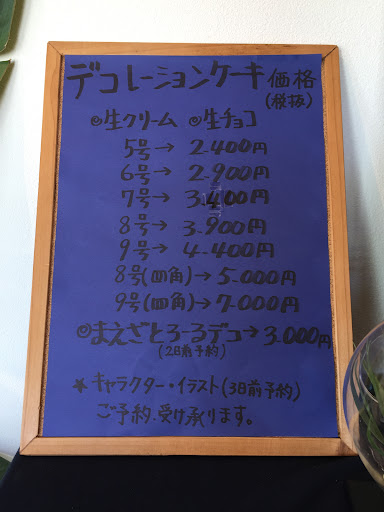 デコレーションケーキ価格
(税抜)
◎生クリーム ◎生チョコ
5号→ 2.400円
6号→ 2.900円
7号→ 3.400円
8号→ 3.900円
9号→ 4.400円
8号(四角)→ 5.000円
9号(四角)→ 7.000円
◎まえざとろーるデコ→3.000円
(2日前予約)
★キャラクター・イラスト(3日前予約)
ご予約受け承ります。